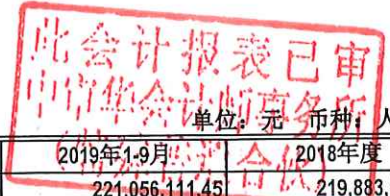 此会计报表已审
中审华会计师事务所
(特殊普通合伙)
单位：元 币种：人
2019年1-9月 2018年度
221,056,111.45 219,883,